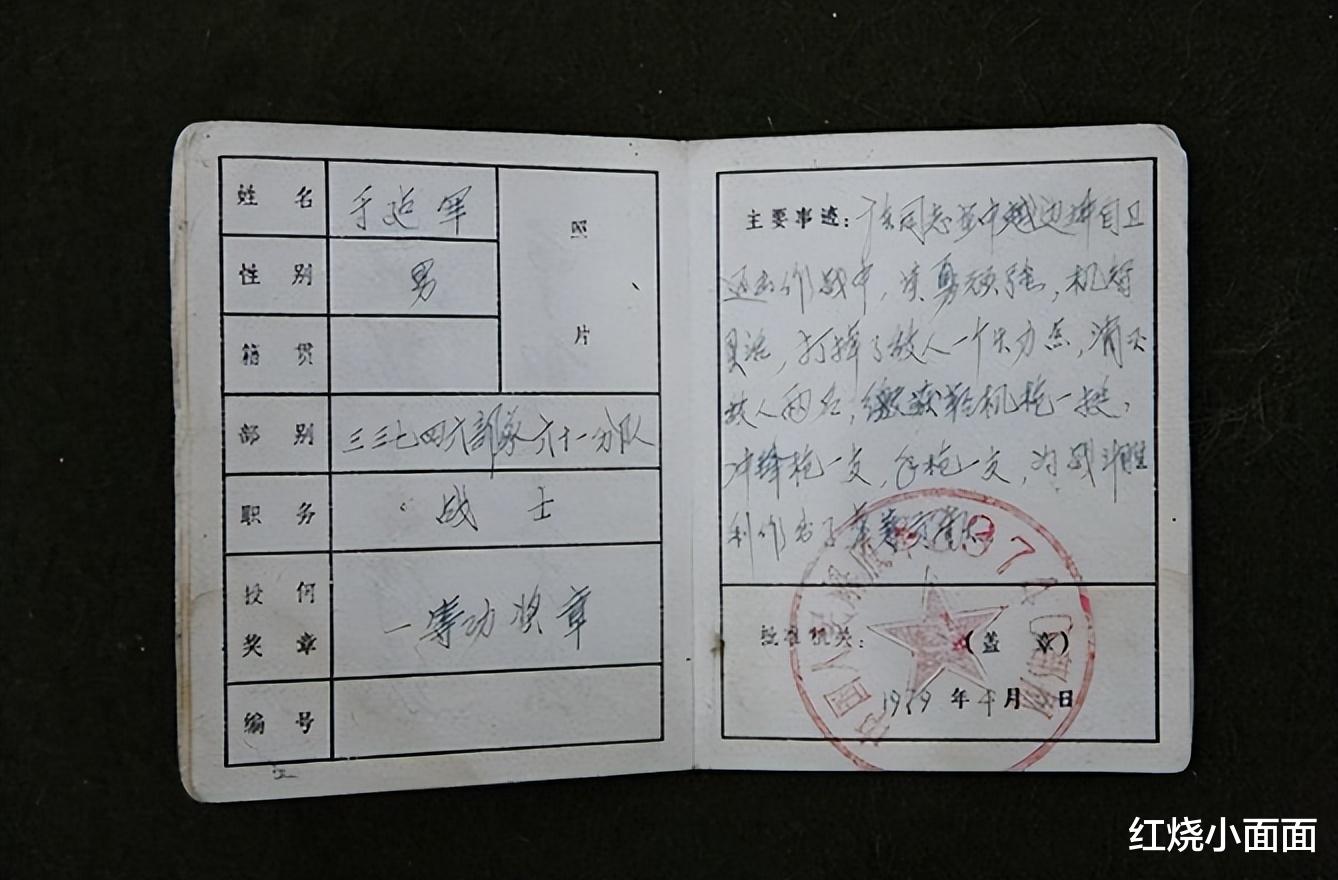 姓 名 于延军
性 别 男
籍 贯
照
片
部 别 三三七四六部队六十一分队
职 务 战 士
授 何
奖 章 一等功奖章
编 号
主要事迹:该同志在中越边境自卫
还击作战中,英勇顽强,机智
灵活,打掉了敌人一个火力点,消灭
敌人两名,缴获轻机枪一挺,
冲锋枪一支,手枪一支,为战斗胜
利作出了 贡献。
批准机关: (盖 章)
1979 年 4 月 日
中国人民解放军
红烧小面面